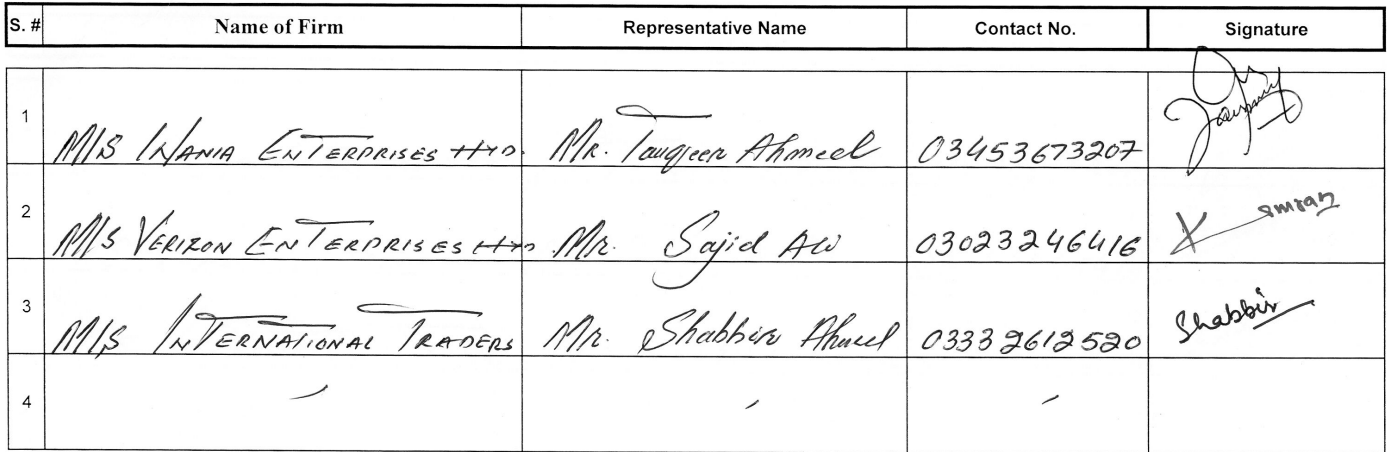 S. # Name of Firm Representative Name Contact No. Signature
1 M/S WANIA ENTERPRISES HYD. MR. Tauqeer Ahmed 03453673207
2 M/S VERIZON ENTERPRISES HYD MR. Sajid Ali 03023246416 Imran
3 M/S INTERNATIONAL TRADERS MR. Shabbir Ahmed 03332612520 Shabbir
4